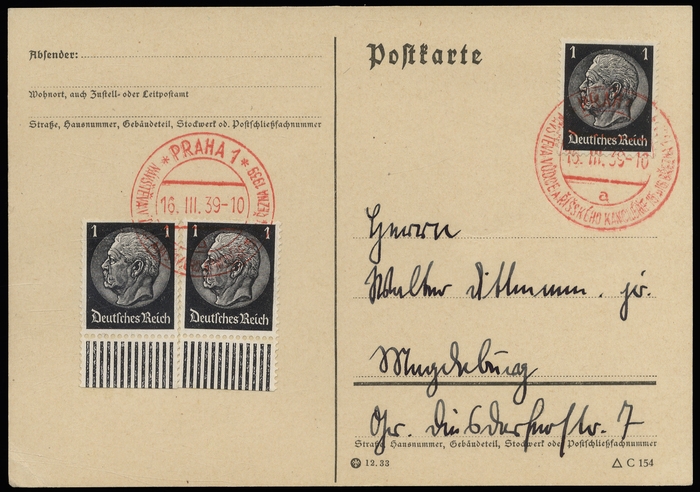 Absender:
Wohnort, auch Zustell- oder Leitpostamt
Straße, Hausnummer, Gebäudeteil, Stockwerk od. Postschließfachnummer
* PRAHA 1 *
16. III. 39-10
1 1
Deutsches Reich
1 1
Deutsches Reich
Postkarte
1 1
Deutsches Reich
16. III. 39-10
a
NÁVŠTĚVA VŮDCE A ŘÍŠSKÉHO KANCLÉŘE
Herrn
Walter Dittmann. jr.
Magdeburg
Gr. Diesdorferstr. 7
Straße, Hausnummer, Gebäudeteil, Stockwerk od. Postschließfachnummer
12.33
C 154